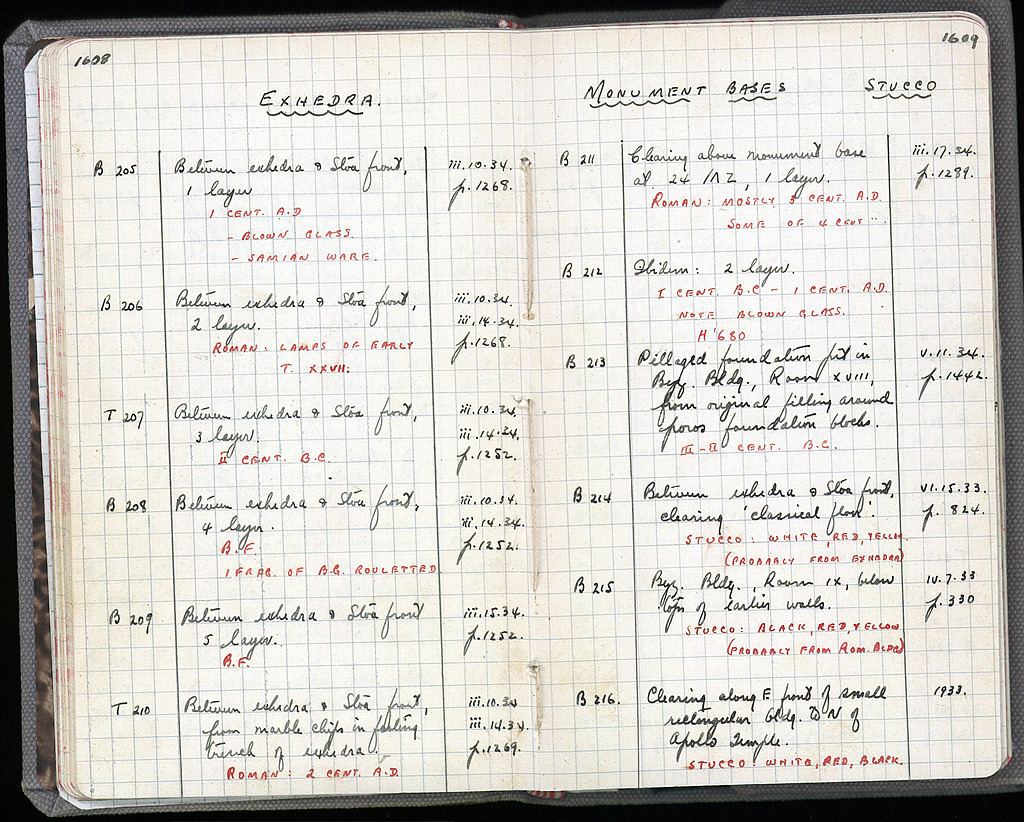 1608
EXHEDRA.
B 205 Between exhedra & Stoa front, iii.10.34.
1 layer p.1268.
1 CENT. A.D
- BLOWN GLASS.
- SAMIAN WARE.
B 206 Between exhedra & Stoa front, iii.10.34.
2 layer. iii.14.34.
ROMAN: LAMPS OF EARLY p.1268.
T. XXVII.
T 207 Between exhedra & Stoa front, iii.10.34.
3 layer. iii.14.34.
II CENT. B.C. p.1252.
B 208 Between exhedra & Stoa front, iii.10.34.
4 layer. iii.14.34.
B.F. p.1252.
1 FRAG. OF B.G. ROULETTED
B 209 Between exhedra & Stoa front iii.15.34.
5 layer. p.1252.
B.F.
T 210 Between exhedra & Stoa front, iii.10.34
from marble chips in footing iii.14.34.
trench of exhedra. p.1269.
ROMAN: 2 CENT. A.D.
1609
MONUMENT BASES STUCCO
B 211 Clearing above monument base iii.17.34.
at 24/ΛΖ, 1 layer. p.1289.
ROMAN: MOSTLY 3 CENT. A.D.
SOME OF 4 CENT "
B 212 Ibidem: 2 layer.
I CENT. B.C - 1 CENT. A.D.
NOTE BLOWN GLASS.
H'680
B 213 Pillaged foundation pit in v.11.34.
Byz. Bldg., Room XVIII, p.1442.
from original filling around
poros foundation blocks.
III-II CENT. B.C.
B 214 Between exhedra & Stoa front, VI.15.33.
clearing 'classical floor'. p. 824.
STUCCO: WHITE, RED, YELLOW
(PROBABLY FROM EXHEDRA)
B 215 Byz. Bldg., Room IX, below IV.7.33
tops of earlier walls. p.330
STUCCO: BLACK, RED, YELLOW
(PROBABLY FROM ROM. BLDG)
B 216. Clearing along E front of small 1933.
rectangular bldg. to N of
Apollo Temple.
STUCCO WHITE, RED, BLACK.